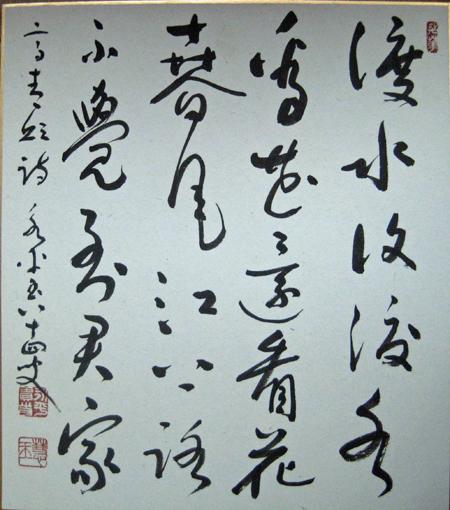 渡水復渡水
看花還看花
春風江上路
不覺到君家
高青邱詩 八十四叟